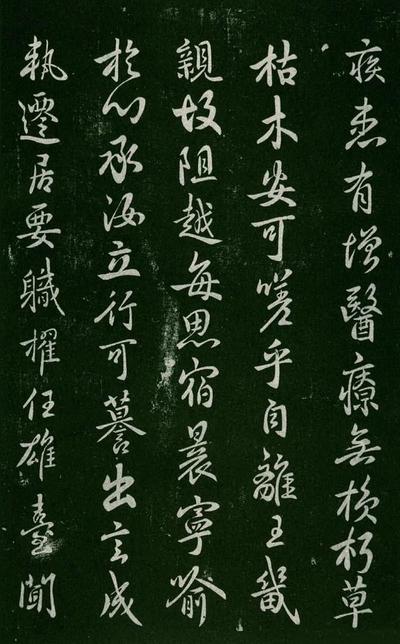 疾患有增醫療無損朽草
枯木安可嗟乎自離王畿
親故阻越每思宿昔寧喻
於心承汝立行可著出言成
執遷居要職擢任雄臺聞